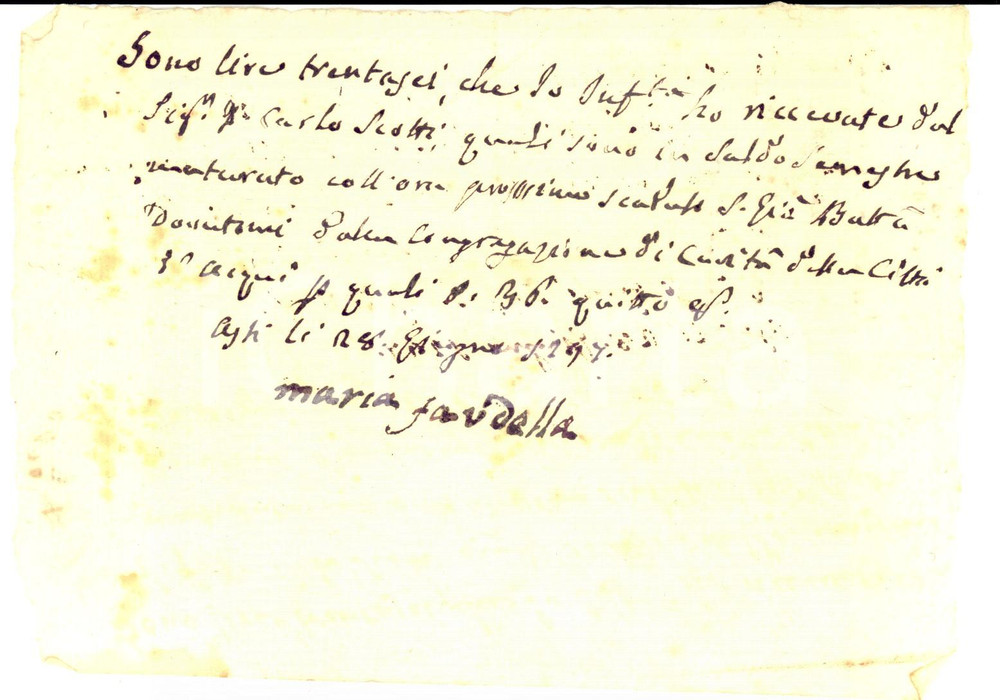 Sono lire trentasei, che Io Infta ho riccevute dal
Sigr. Carlo Scotti, quali sono in saldo Semestre
maturato coll'ora prossimo scaduto S. Gio Batta
Dovutomi dalla Congregazione di Carità della Città
d'Acqui p quali L. 36. quitto
Acqui li 28 Giugno 1797.
maria favdella